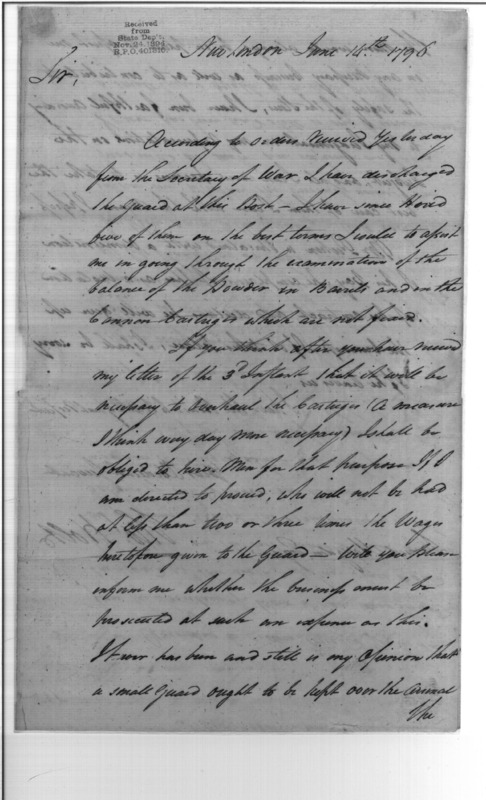 Received
from
State Dep't.
Nov. 24, 1894
New London June 14th. 1796
Sir,
According to orders received Yesterday
from the Secretary of War, I have discharged
the Guard at this Post – I have since hired
five of them on the best terms I could to assist
me in going through the examination of the
balance of the Powder in Barrels and in the
Cannon Cartriges which are not fixed.
If you think after you have received
my letter of the 3d. Instant that it will be
necessary to overhaul the Cartriges (a measure
I think every day more necessary) I shall be
obliged to hire Men for that purpose If I
am directed to proceed, who will not be had
at less than two or three times the Wages
heretofore given to the Guard – Will you please
inform me whether the business must be
prosecuted at such an expence as this.
It ever has been and still is my Opinion that
a small Guard ought to be kept over the Arsenal
The